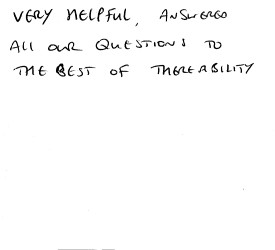 VERY HELPFUL, ANSWERED
ALL OUR QUESTIONS TO
THE BEST OF THERE ABILITY